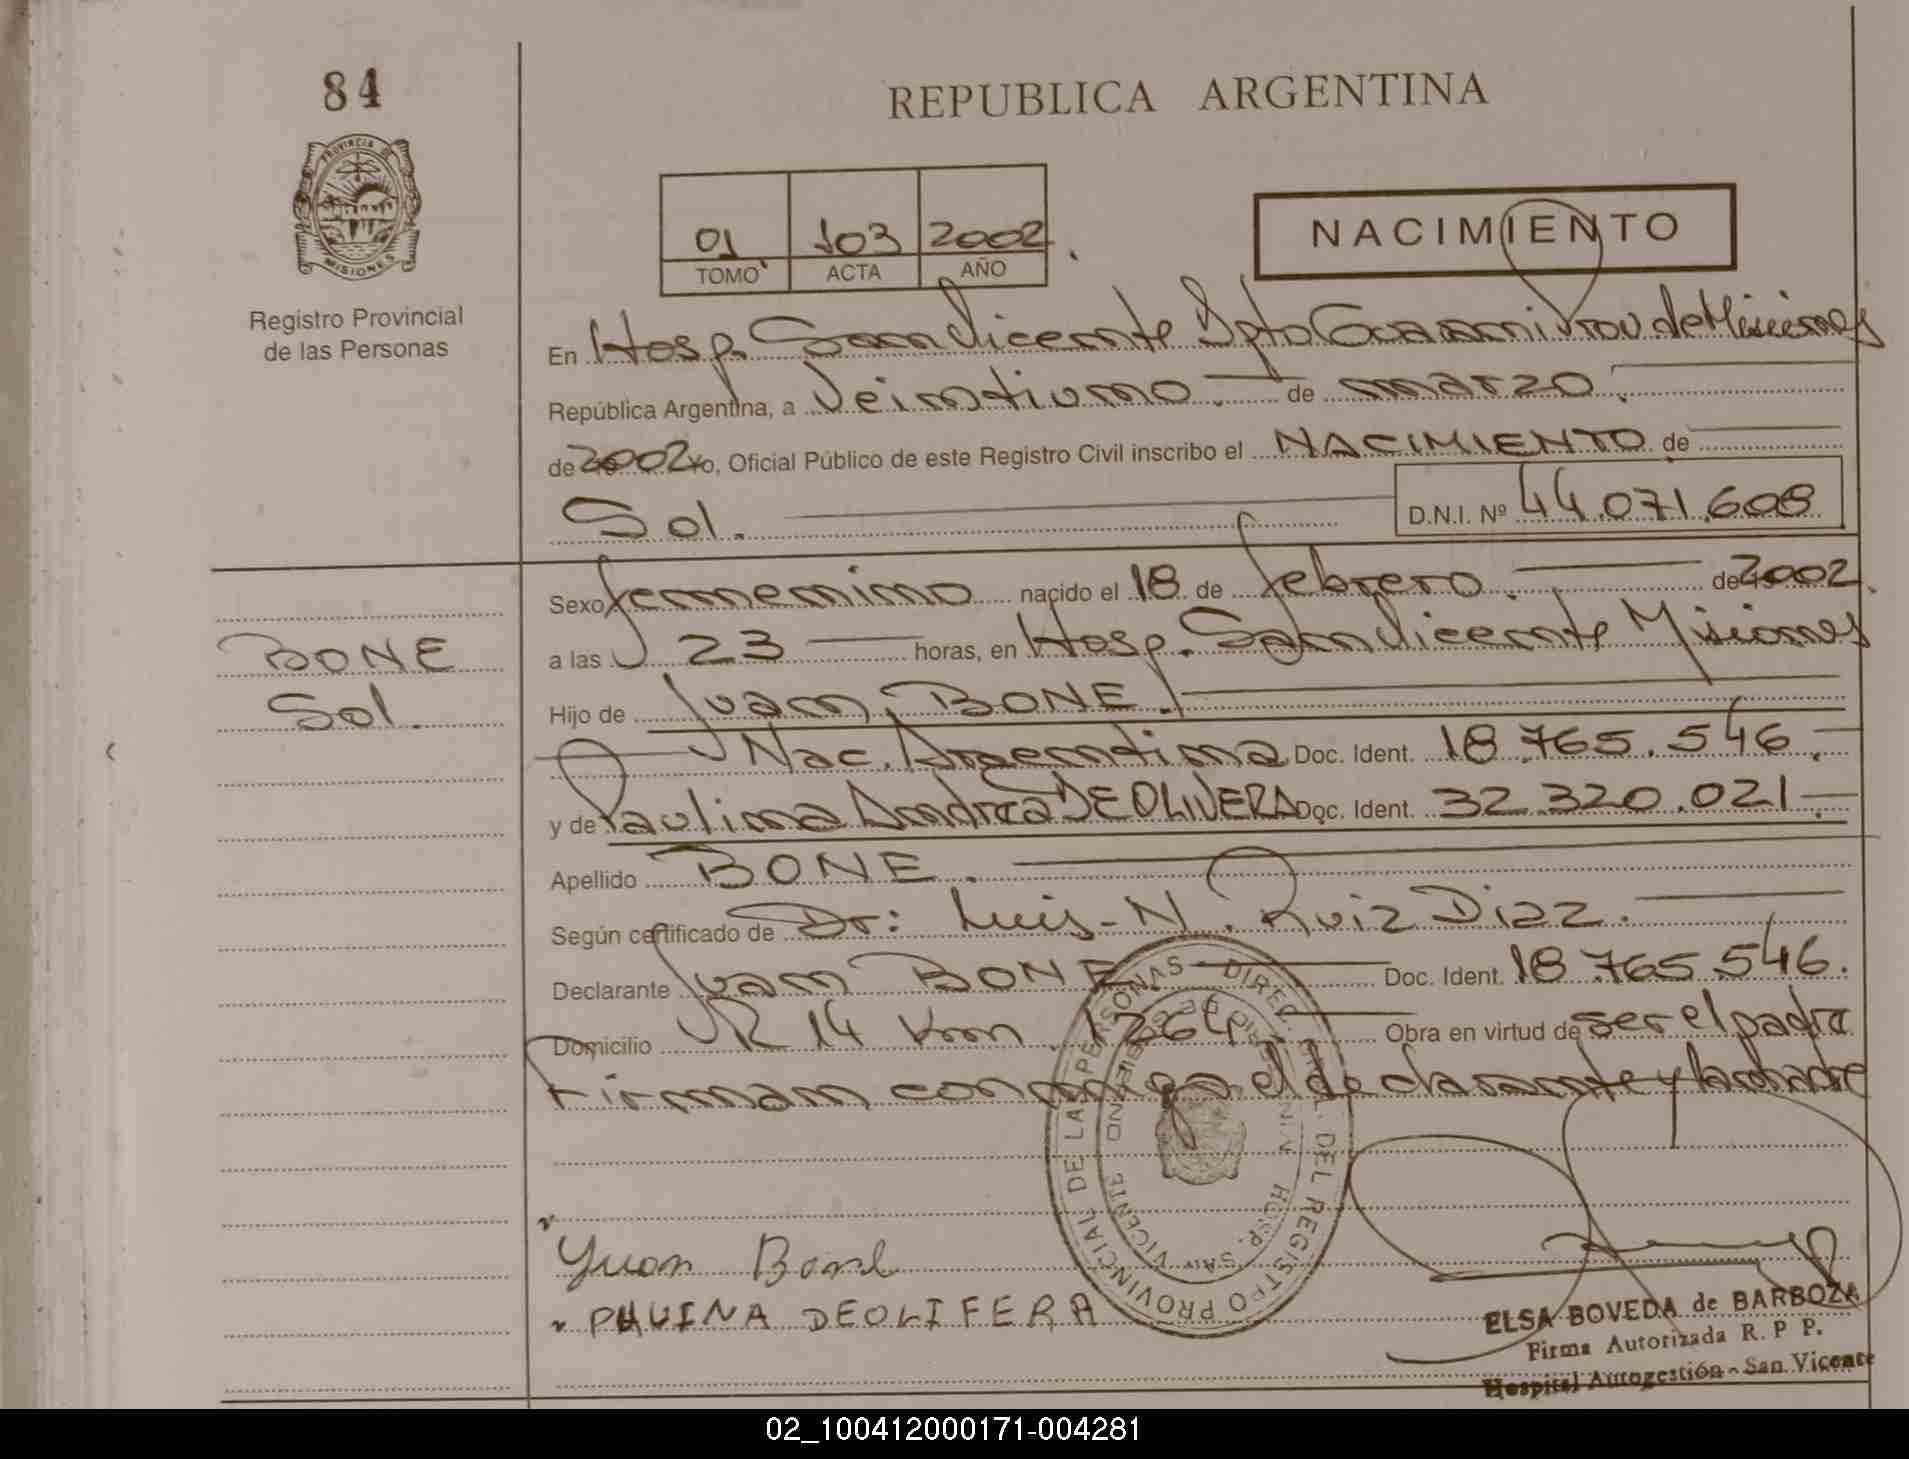 84
PROVINCIA DE
MISIONES
Registro Provincial
de las Personas
REPUBLICA ARGENTINA
01 103 2002
TOMO ACTA AÑO
NACIMIENTO
En Hosp. San Vicente Dpto Guarani Prov. de Misiones
República Argentina, a Veintiuno. de marzo.
de 2002 yo, Oficial Público de este Registro Civil inscribo el NACIMIENTO de
Sol. D.N.I. Nº 44.071.608
Sexo femenino nacido el 18 de febrero. de 2002.
BONE
Sol.
a las 23 horas, en Hosp. San Vicente Misiones
Hijo de Juan BONE.
Nac. Argentina Doc. Ident. 18.765.546.
y de Paulina Andrea DE OLIVERA Doc. Ident. 32.320.021.
Apellido BONE.
Según certificado de Dr: Luis-N. Ruiz Diaz.
Declarante Juan BONE Doc. Ident. 18.765.546.
Domicilio R 14 Km. 1264 Obra en virtud de ser el padre
Firman conmigo el declarante y la madre
DIREC. GRAL. DEL REGISTRO PROVINCIAL DE LA PERSONAS
HOSP. SAN VICENTE
Yuan Bone
PAUINA DEOLIFERA
ELSA BOVEDA de BARBOZA
Firma Autorizada R. P P.
Hospital Autogestión - San Vicente
02_100412000171-004281